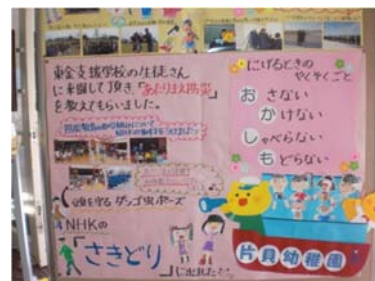 東金支援学校の生徒さん
に来園して頂き、「あたりまえ防災」
を教えてもらいました。
頭を守るダンゴ虫ポーズ
NHKの
「さきどり」
に出ました。
にげるときの
やくそくごと
おさない
かけない
しゃべらない
もどらない
片貝幼稚園